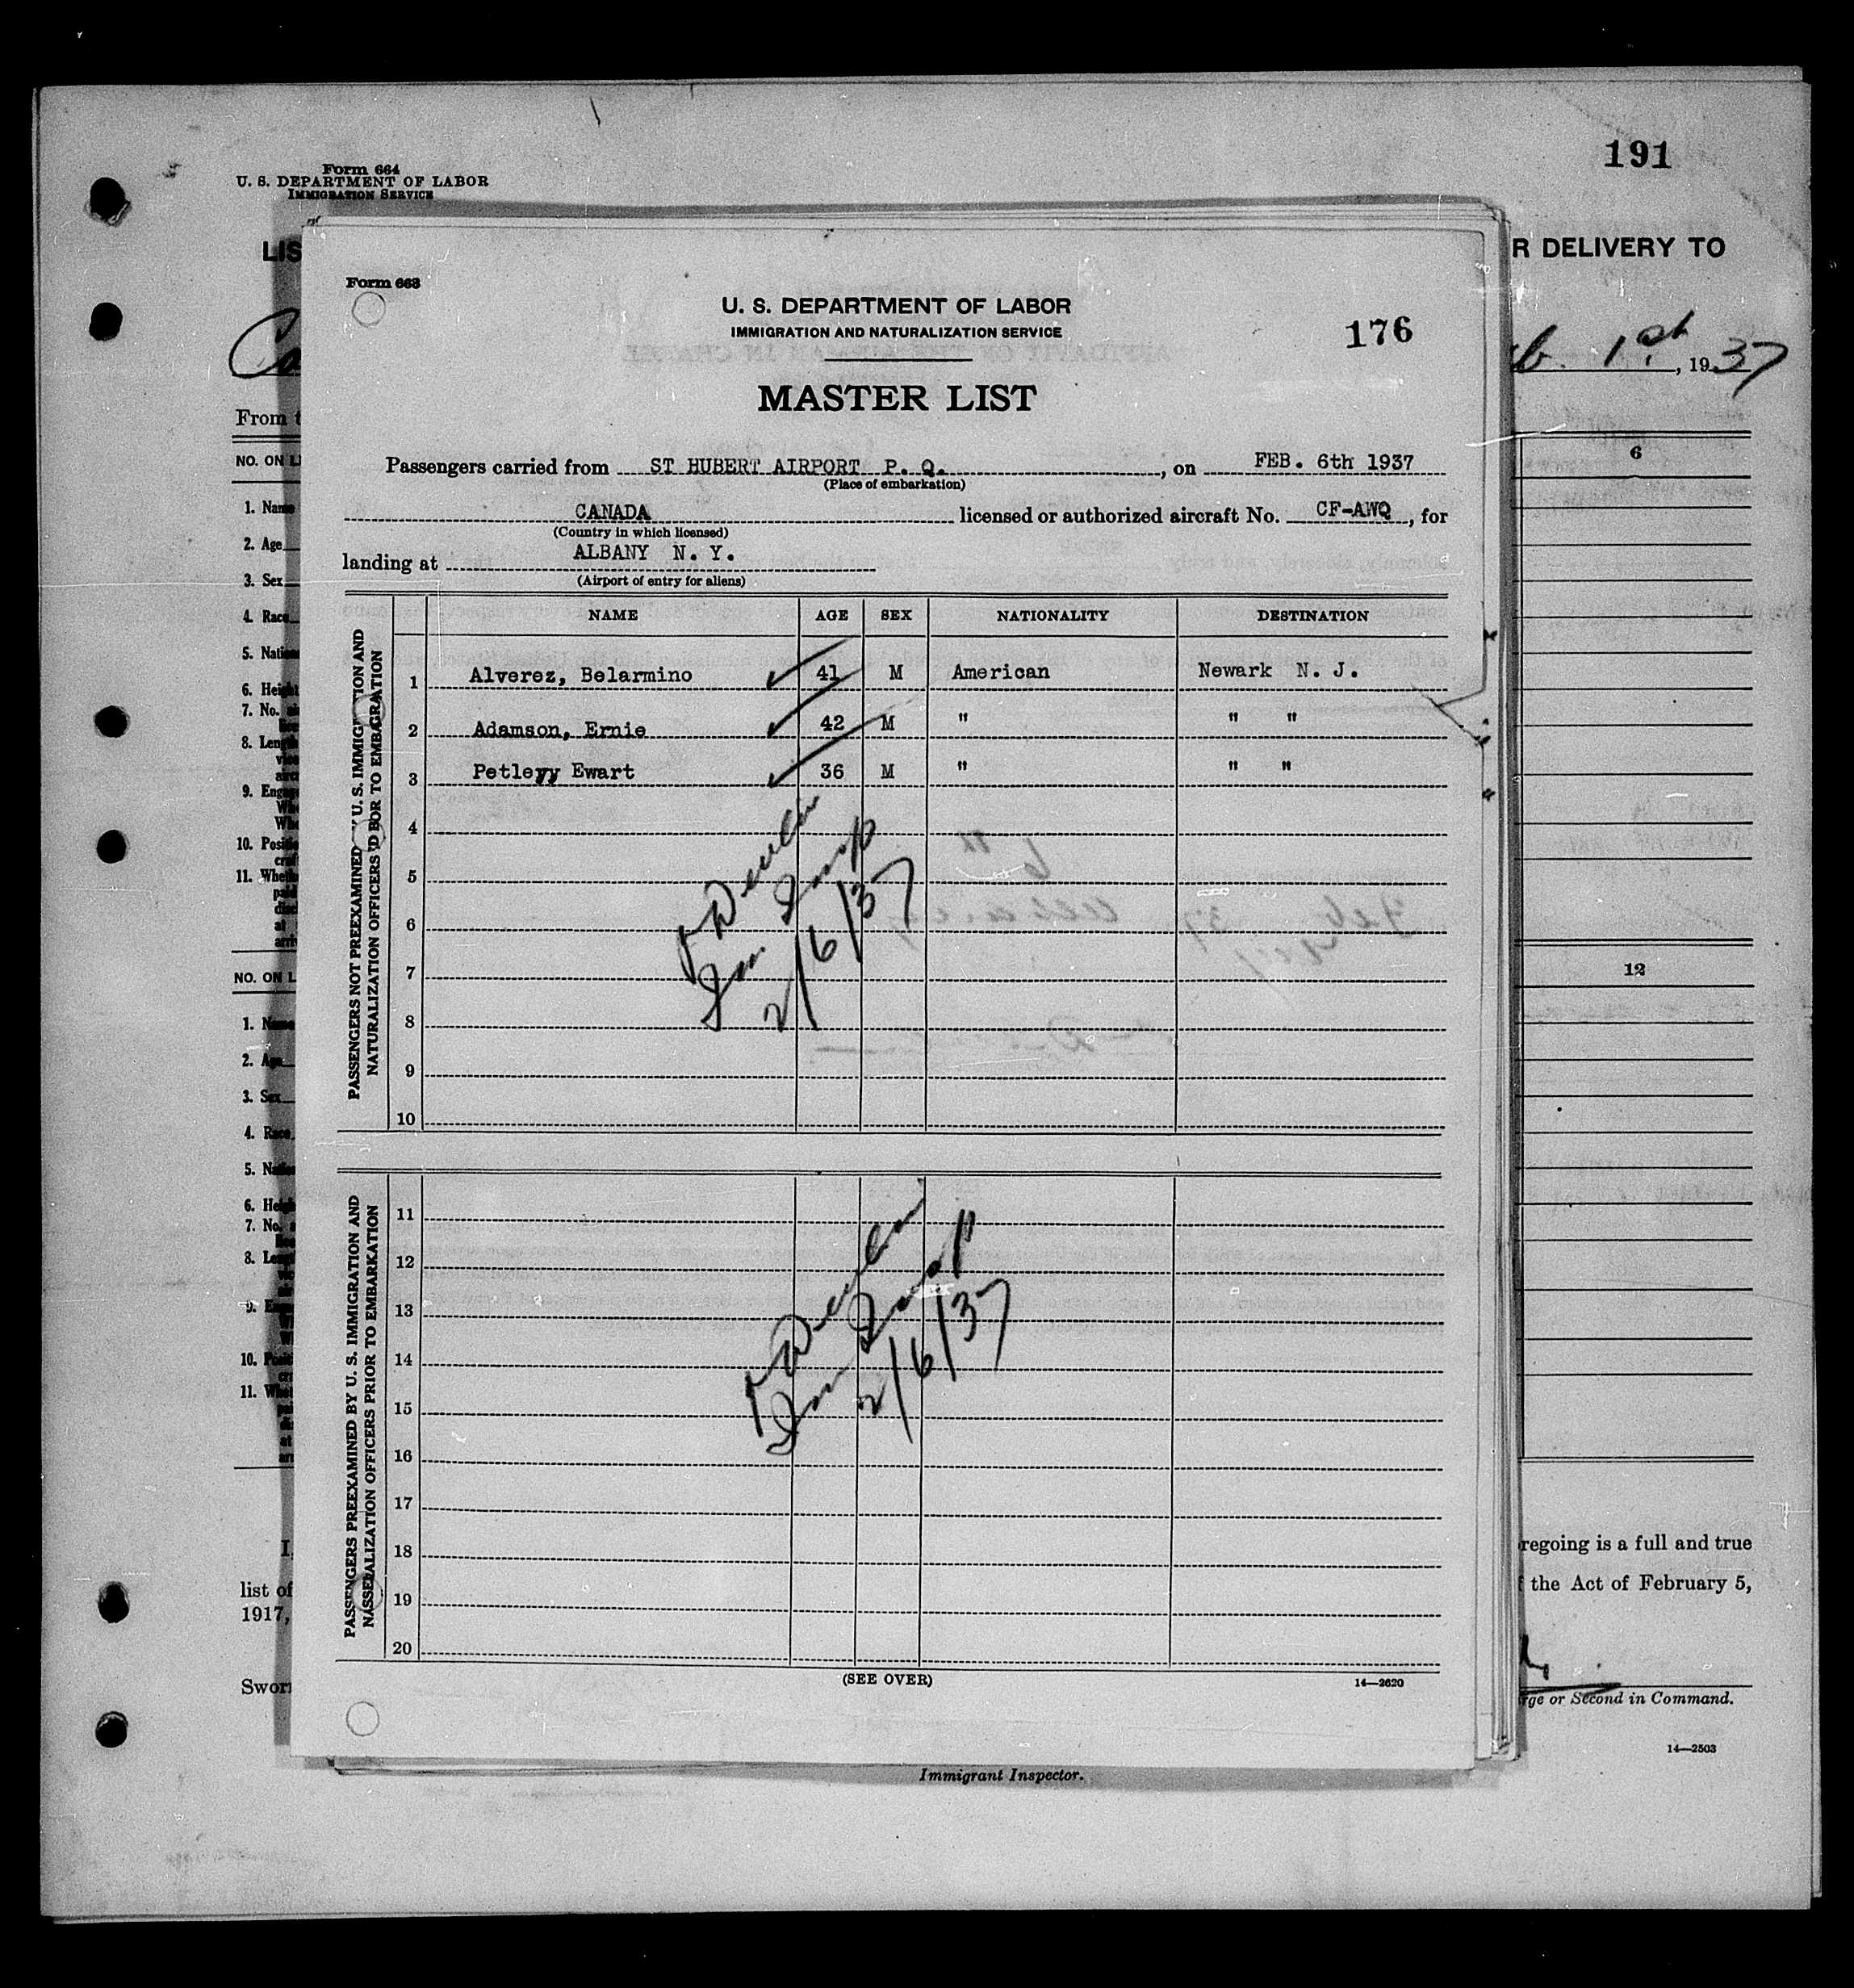 191
Form 664
U. S. DEPARTMENT OF LABOR
IMMIGRATION SERVICE
LIS
R DELIVERY TO
1st, 1937
From
NO. ON
6
1. Name
2. Age
3. Sex
4. Race
5. Natio
6. Height
7. No.
8. Leng
9. Eng
10. Posi
11. Whe
NO. ON L
12
1. Name
2. Age
3. Sex
4. Race
5. Natio
6. Heig
7. No.
8. Leng
9. E
10. Posi
11. Whe
I,
regoing is a full and true
list of
the Act of February 5,
1917,
Sworn
rge or Second in Command.
14—2503
Immigrant Inspector.
Form 663
U. S. DEPARTMENT OF LABOR
IMMIGRATION AND NATURALIZATION SERVICE
176
MASTER LIST
Passengers carried from ST HUBERT AIRPORT P. Q., on FEB. 6th 1937
(Place of embarkation)
CANADA licensed or authorized aircraft No. CF-AWQ, for
(Country in which licensed)
landing at ALBANY N. Y.
(Airport of entry for aliens)
NAME AGE SEX NATIONALITY DESTINATION
PASSENGERS NOT PREEXAMINED BY U. S. IMMIGRATION AND
NATURALIZATION OFFICERS PRIOR TO EMBARKATION
1 Alverez, Belarmino 41 M American Newark N. J.
2 Adamson, Ernie 42 M " " "
3 Petleyy Ewart 36 M " " "
4
5
6
7
8
9
10
Devlin
Imm Insp
2/6/37
PASSENGERS PREEXAMINED BY U. S. IMMIGRATION AND
NATURALIZATION OFFICERS PRIOR TO EMBARKATION
11
12
13
14
15
16
17
18
19
20
Devlin
Imm Insp
2/6/37
(SEE OVER)
14—2620